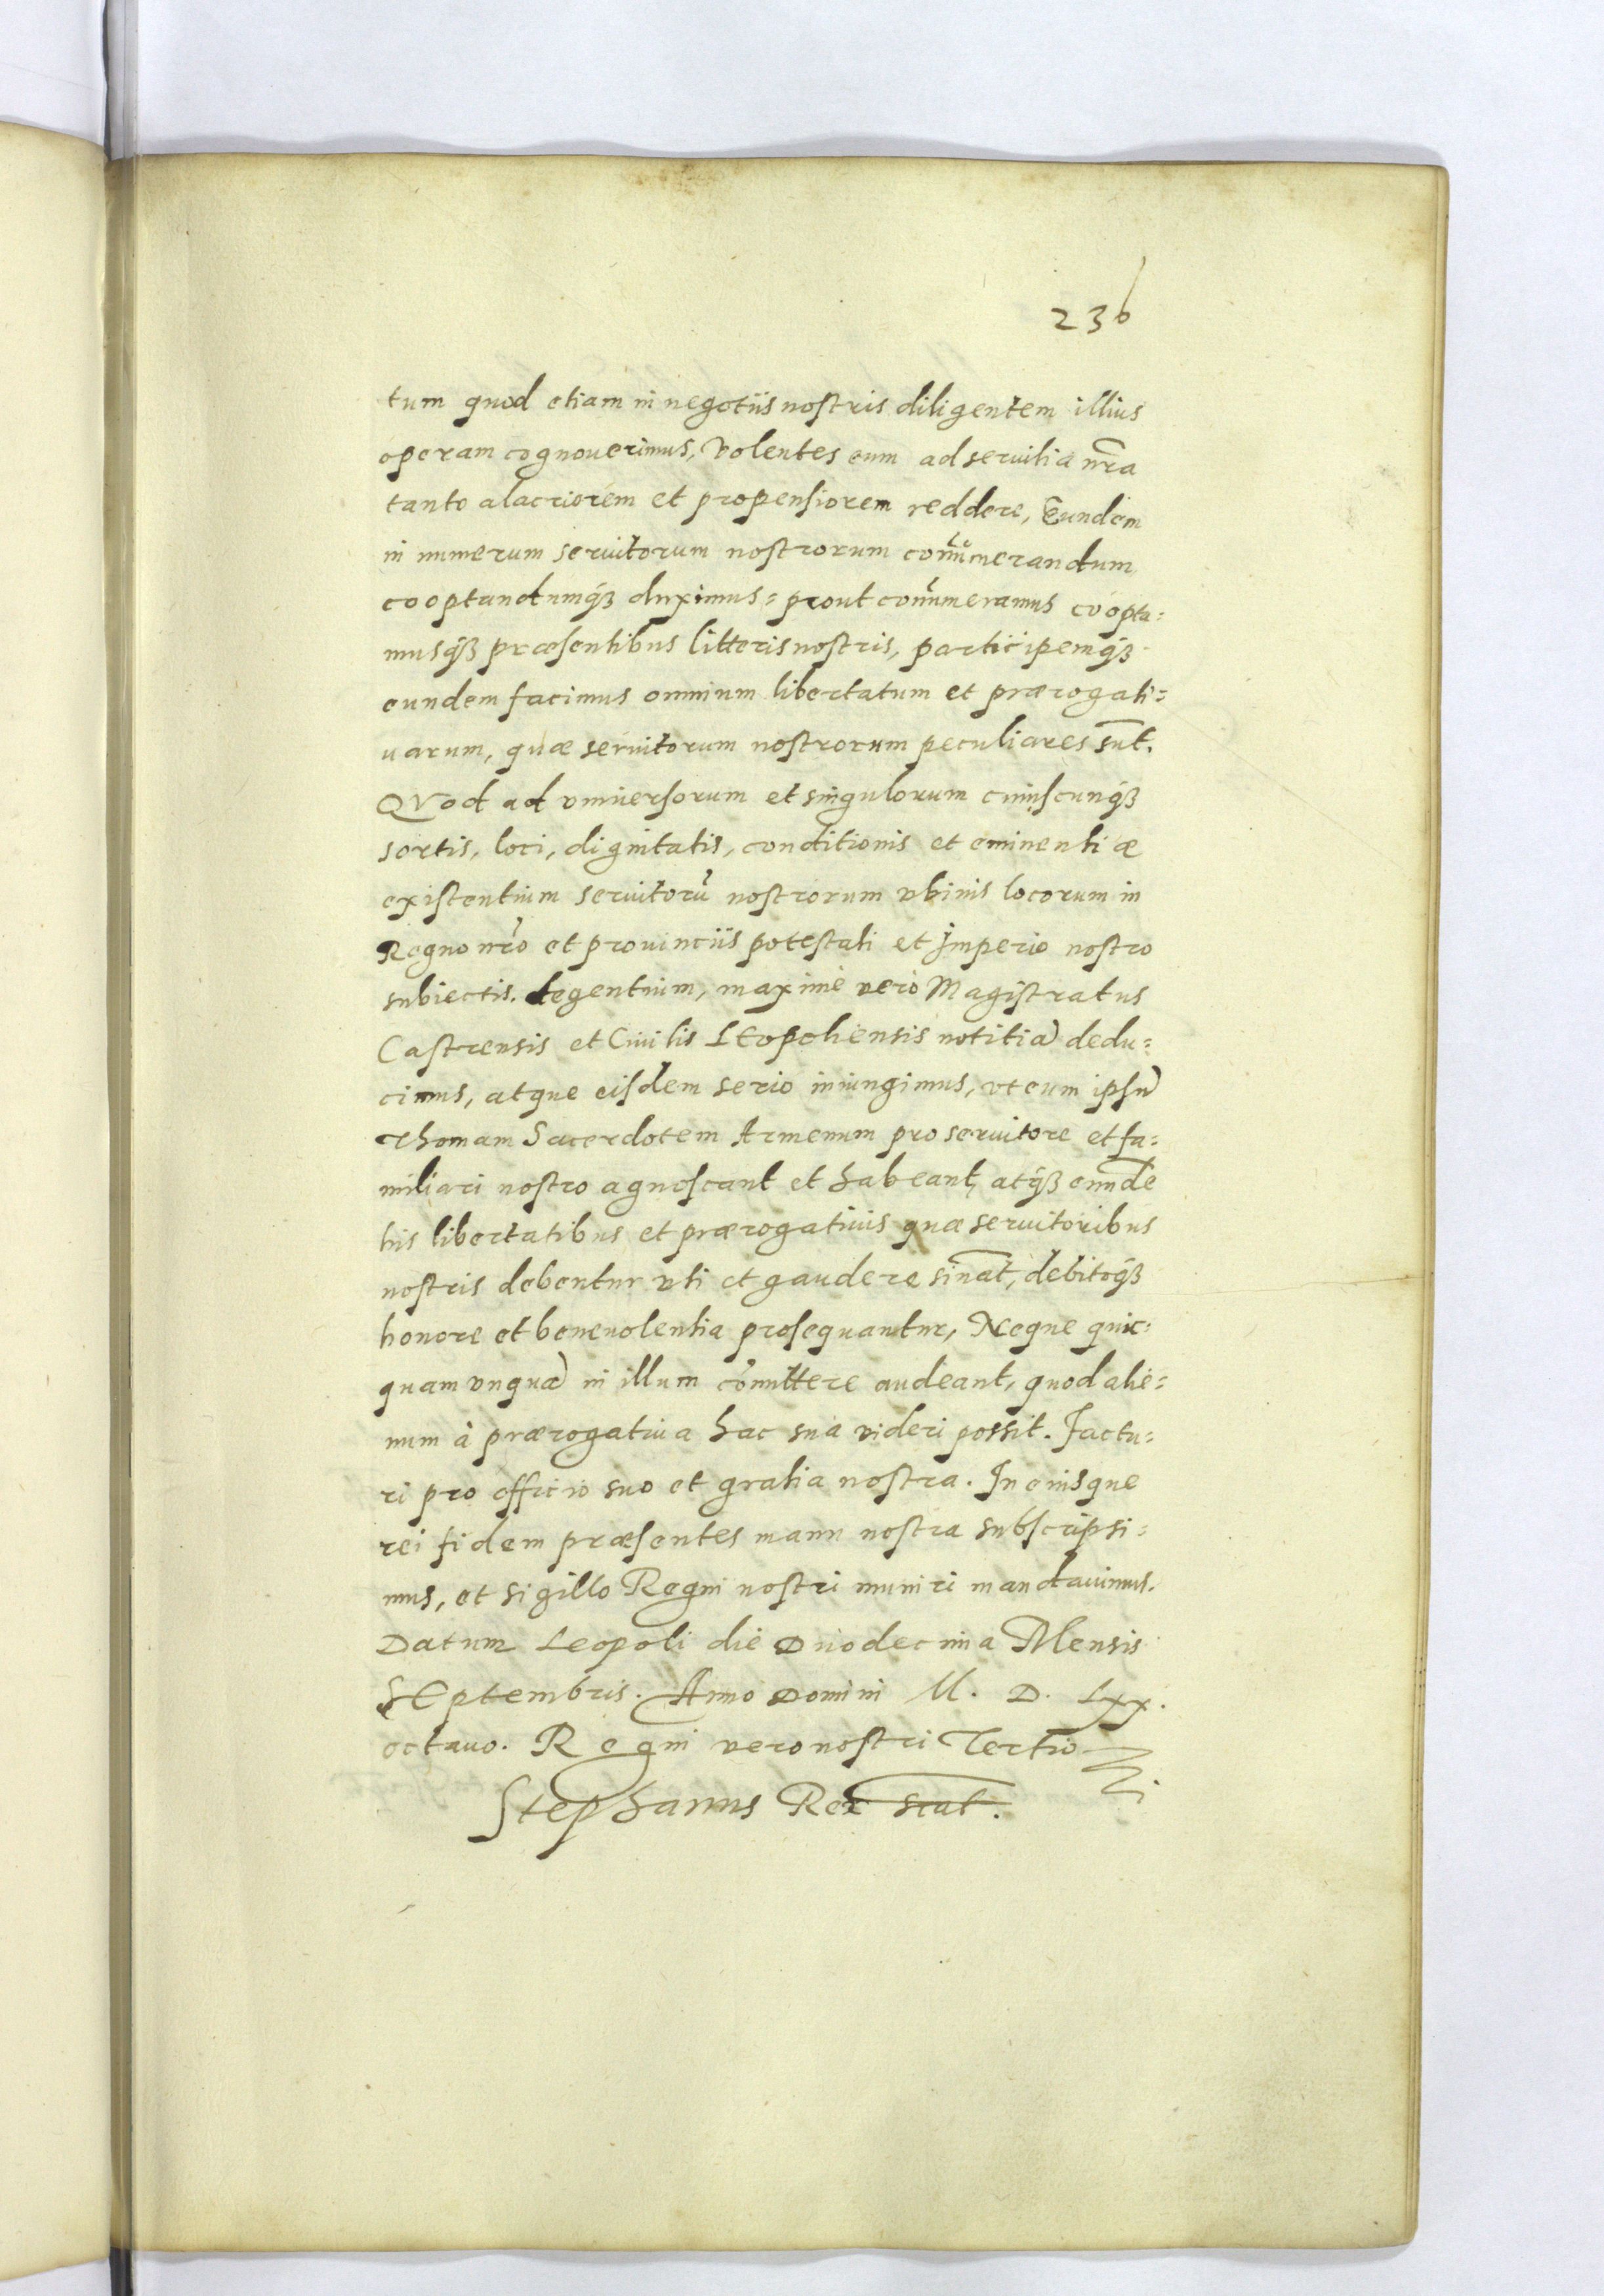 236
tum quod etiam in negotiis nostris diligentem illius
operam cognouerimus, Volentes eum ad seruitia nr̄a
tanto alacriorem et propensiorem reddere, Eundem
in numerum seruitorum nostrorum con̄numerandum
cooptandumq́ꝫ duximus = prout con̄numeramus coopta=
musq́ꝫ præsentibus litteris nostris, participemq́ꝫ
eundem facimus omnium libertatum et prærogati=
uarum, quæ seruitorum nostrorum peculiares sūt.
QVod ad vniuersorum et singulorum cuiuscunq́ꝫ
sortis, loci, dignitatis, conditionis et eminentiæ
existentium seruitorū nostrorum vbiuis locorum in
Regno nr̄o et prouinciis potestati et Imperio nostro
subiectis. degentium, maximè verò Magistratus
Castrensis et Ciuilis LEopoliensis notitiā dedu=
cimus, atque eisdem serio iniungimus, vt eum ipsū
Thomam Sacerdotem Armenum pro seruitore et fa=
miliari nostro agnoscant et habeant, atq́ꝫ eundē
his libertatibus et prærogatiuis quæ seruitoribus
nostris debentur vti et gaudere sināt, debitoq́ꝫ
honore et beneuolentia prosequantur, Neque quic=
quam vnquā in illum com̄ittere audeant, quod alie=
num à prærogatiua hac sua videri possit. Factu=
ri pro officio suo et gratia nostra. In cuius que
rei fidem præsentes manu nostra subscripsi=
mus, et sigillo Regni nostri muniri mandauimus.
Datum Leopoli die Duodecima Mensis
SEptembris. Anno Domini M. D. Lxx.
octauo. Regni vero nostri Tertio
Stephanus Rex scat.